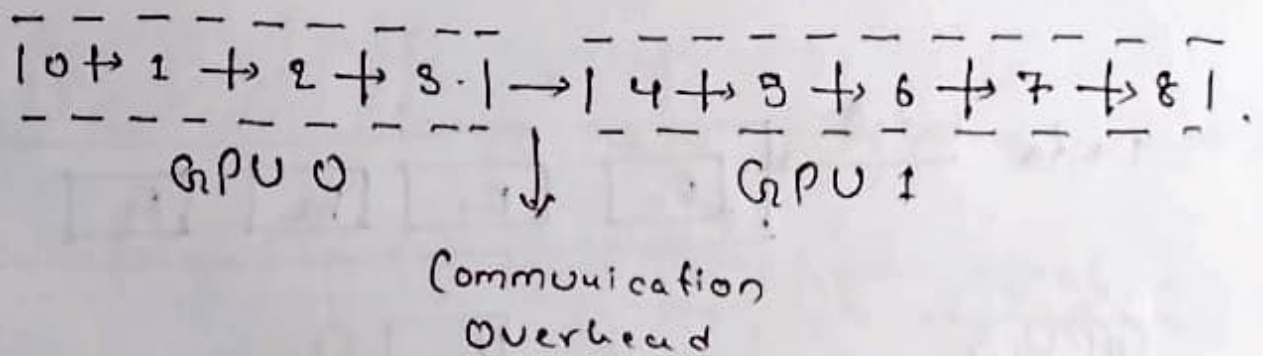 | 0 → 1 → 2 → 3 . | → | 4 → 5 → 6 → 7 → 8 | .
GPU 0 GPU 1
Communication
Overhead